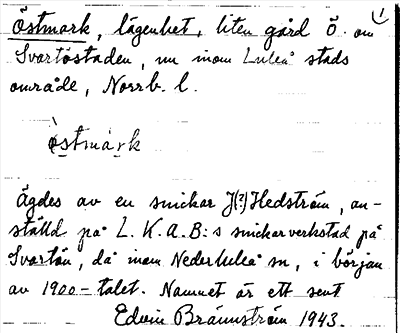 1
Östmark, lägenhet, liten gård ö. om
Svartöstaden, nu inom Luleå stads
område, Norrb. l.
östmark
Ägdes av en snickar J(?) Hedström, an-
ställd på L. K. A. B:s snickarverkstad på
Svartön, då inom Nederluleå sn, i början
av 1900-talet. Namnet är ett sent
Edvin Brännström 1943.